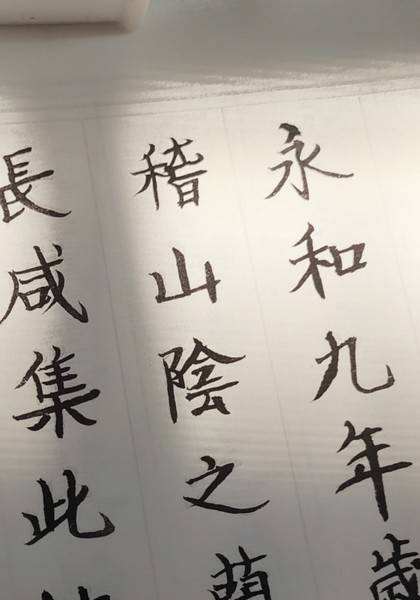 永和九年歲
稽山陰之蘭
長咸集此